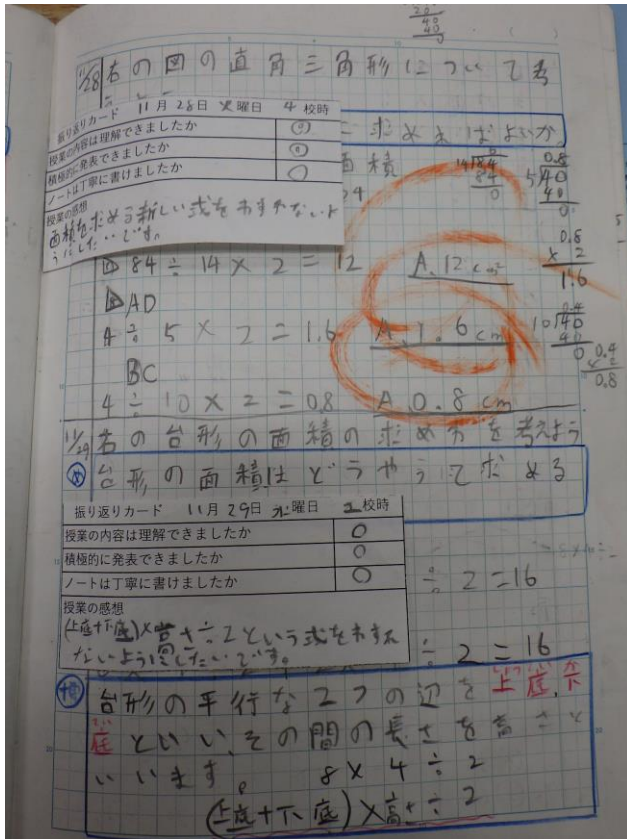 11/28 右の図の直角三角形について考
振り返りカード 11月28日 火曜日 4校時
授業の内容は理解できましたか ◎
積極的に発表できましたか ◎
ノートは丁寧に書けましたか ○
授業の感想
面積を求める新しい式をわすれないよ
うにしたいです。
求めればよいか
面積
84÷14×2=12 A.12cm²
AD
4÷5×2=1.6 A.1.6cm
BC
4÷10×2=0.8 A.0.8cm
11/29 右の台形の面積の求め方を考えよう
め 台形の面積はどうやって求める
振り返りカード 11月29日 水曜日 2校時
授業の内容は理解できましたか ○
積極的に発表できましたか ○
ノートは丁寧に書けましたか ○
授業の感想
(上底+下底)×高さ÷2という式をわすれ
ないようにしたいです。
÷2=16
÷2=16
台形の平行な2つの辺を上底、下
底といい、その間の長さを高さと
いいます。 8×4÷2
(上底+下底)×高さ÷2